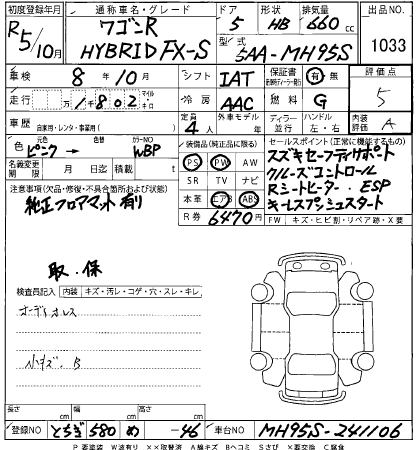 初度登録年月 通称車名・グレード ドア 形状 排気量 出品No.
R5/10月 ワゴンR HYBRID FX-S 5 HB 660 cc 1033
型式 5AA-MH95S
車検 8年10月 シフト IAT 保証書 有・無 評価点 5
走行 1,802 マイル キロ 冷房 AAC 燃料 G
車歴 自家用・レンタ・事業用( ) 定員 4人 外車モデル 年 ディーラー 並行 ハンドル 左・右 内装評価 A
色 元色 ピンク → 色替 カラーNO WBP
装備品(純正品に限る) セールスポイント(正常に機能するもの)
PS PW AW スズキセーフティサポート
名義変更期限 月 日 積載 t SR TV ナビ クルーズコントロール
注意事項(欠品・修復・不具合箇所および状態) 本革 エアB ABS Rシートヒーター、ESP
純正フロアマット有り R券 6470円 キーレスプッシュスタート
FW キズ・ヒビ割・リペア跡・X要
取・保
検査員記入 内装 キズ・汚レ・コゲ・穴・スレ・キレ
オーディオレス
小キズ・B
長さ cm 幅 cm 高さ cm
登録NO とちぎ 580 め -46 車台NO MH95S-241106
P 要塗装 W波有り ××取替済 A線キズ Bヘコミ Sさび X要交換 C腐食